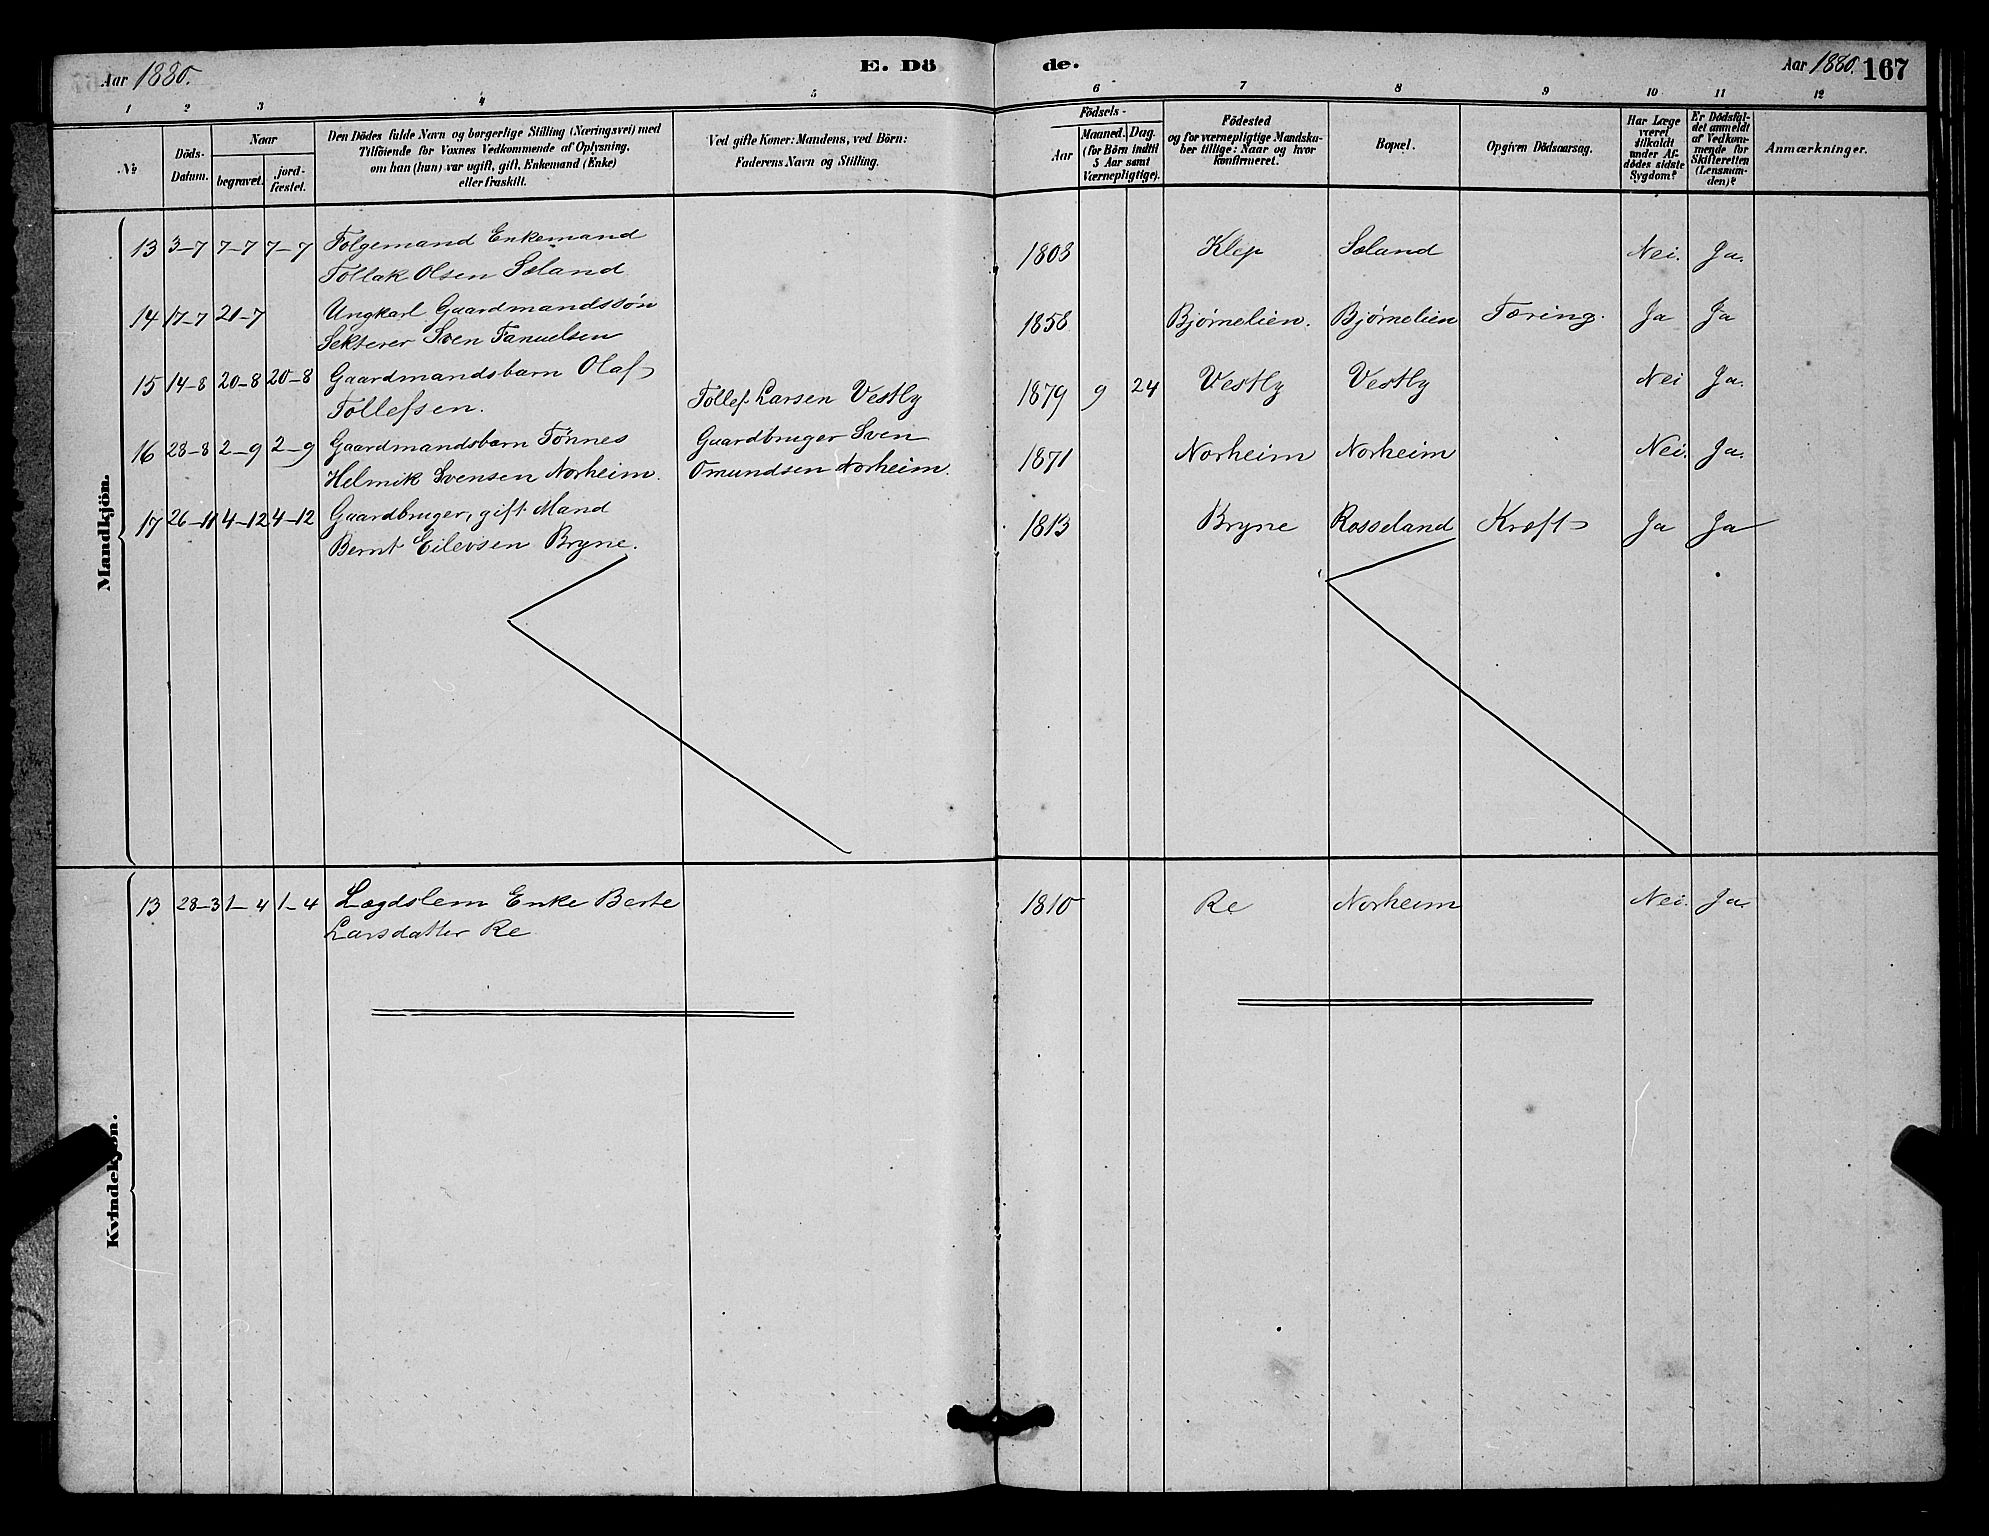 Aar 1880.
E. Dö
de.
Aar 1880.
167
1
2
3
4
5
6
7
8
9
10
11
12
№
Döds-
Datum.
Naar
begravet.
jord-
fæstet.
Den Dödes fulde Navn og borgerlige Stilling (Næringsvei) med
Tilföiende for Voxnes Vedkommende af Oplysning,
om han (hun) var ugift, gift, Enkemand (Enke)
eller fraskilt.
Ved gifte Koner: Mandens, ved Börn:
Faderens Navn og Stilling.
Födsels-
Aar
Maaned.
Dag.
(for Börn indtil
5 Aar samt
Værnepligtige).
Födested
og for værnepligtige Mandska-
ber tillige: Naar og hvor
konfirmeret.
Bopæl.
Opgiven Dödsaarsag.
Har Læge
været
tilkaldt
under Af-
dödes sidste
Sygdom?
Er Dödsfal-
det anmeldt
af Vedkom-
mende for
Skifteretten
(Lensman-
den)?
Anmærkninger.
Mandkjön.
13 3-7 7-7 7-7 Folgemand Enkemand 1803 Klep Sæland Nei. Ja.
Tollak Olsen Sæland
14 17-7 21-7 Ungkarl Gaardmandssön 1858 Bjørnelien. Bjørnelien Tæring. Ja Ja
Sekterer Sven Fanuelsen
15 14-8 20-8 20-8 Gaardmandsbarn Olaf Tollef Larsen Vestly 1879 9 24 Vestly Vestly Nei Ja.
Tollefsen.
16 28-8 2-9 2-9 Gaardmandsbarn Tønnes Gaardbruger Sven 1871 Norheim Norheim Nei. Ja.
Helmik Svensen Norheim. Omundsen Norheim.
17 26-11 4-12 4-12 Gaardbruger, gift Mand 1813 Bryne Rosseland Kræft Ja Ja
Bernt Eilevsen Bryne.
Kvindekjön.
13 28-3 1-4 1-4 Lægdslem Enke Berte 1810 Re Norheim Nei. Ja.
Larsdatter Re